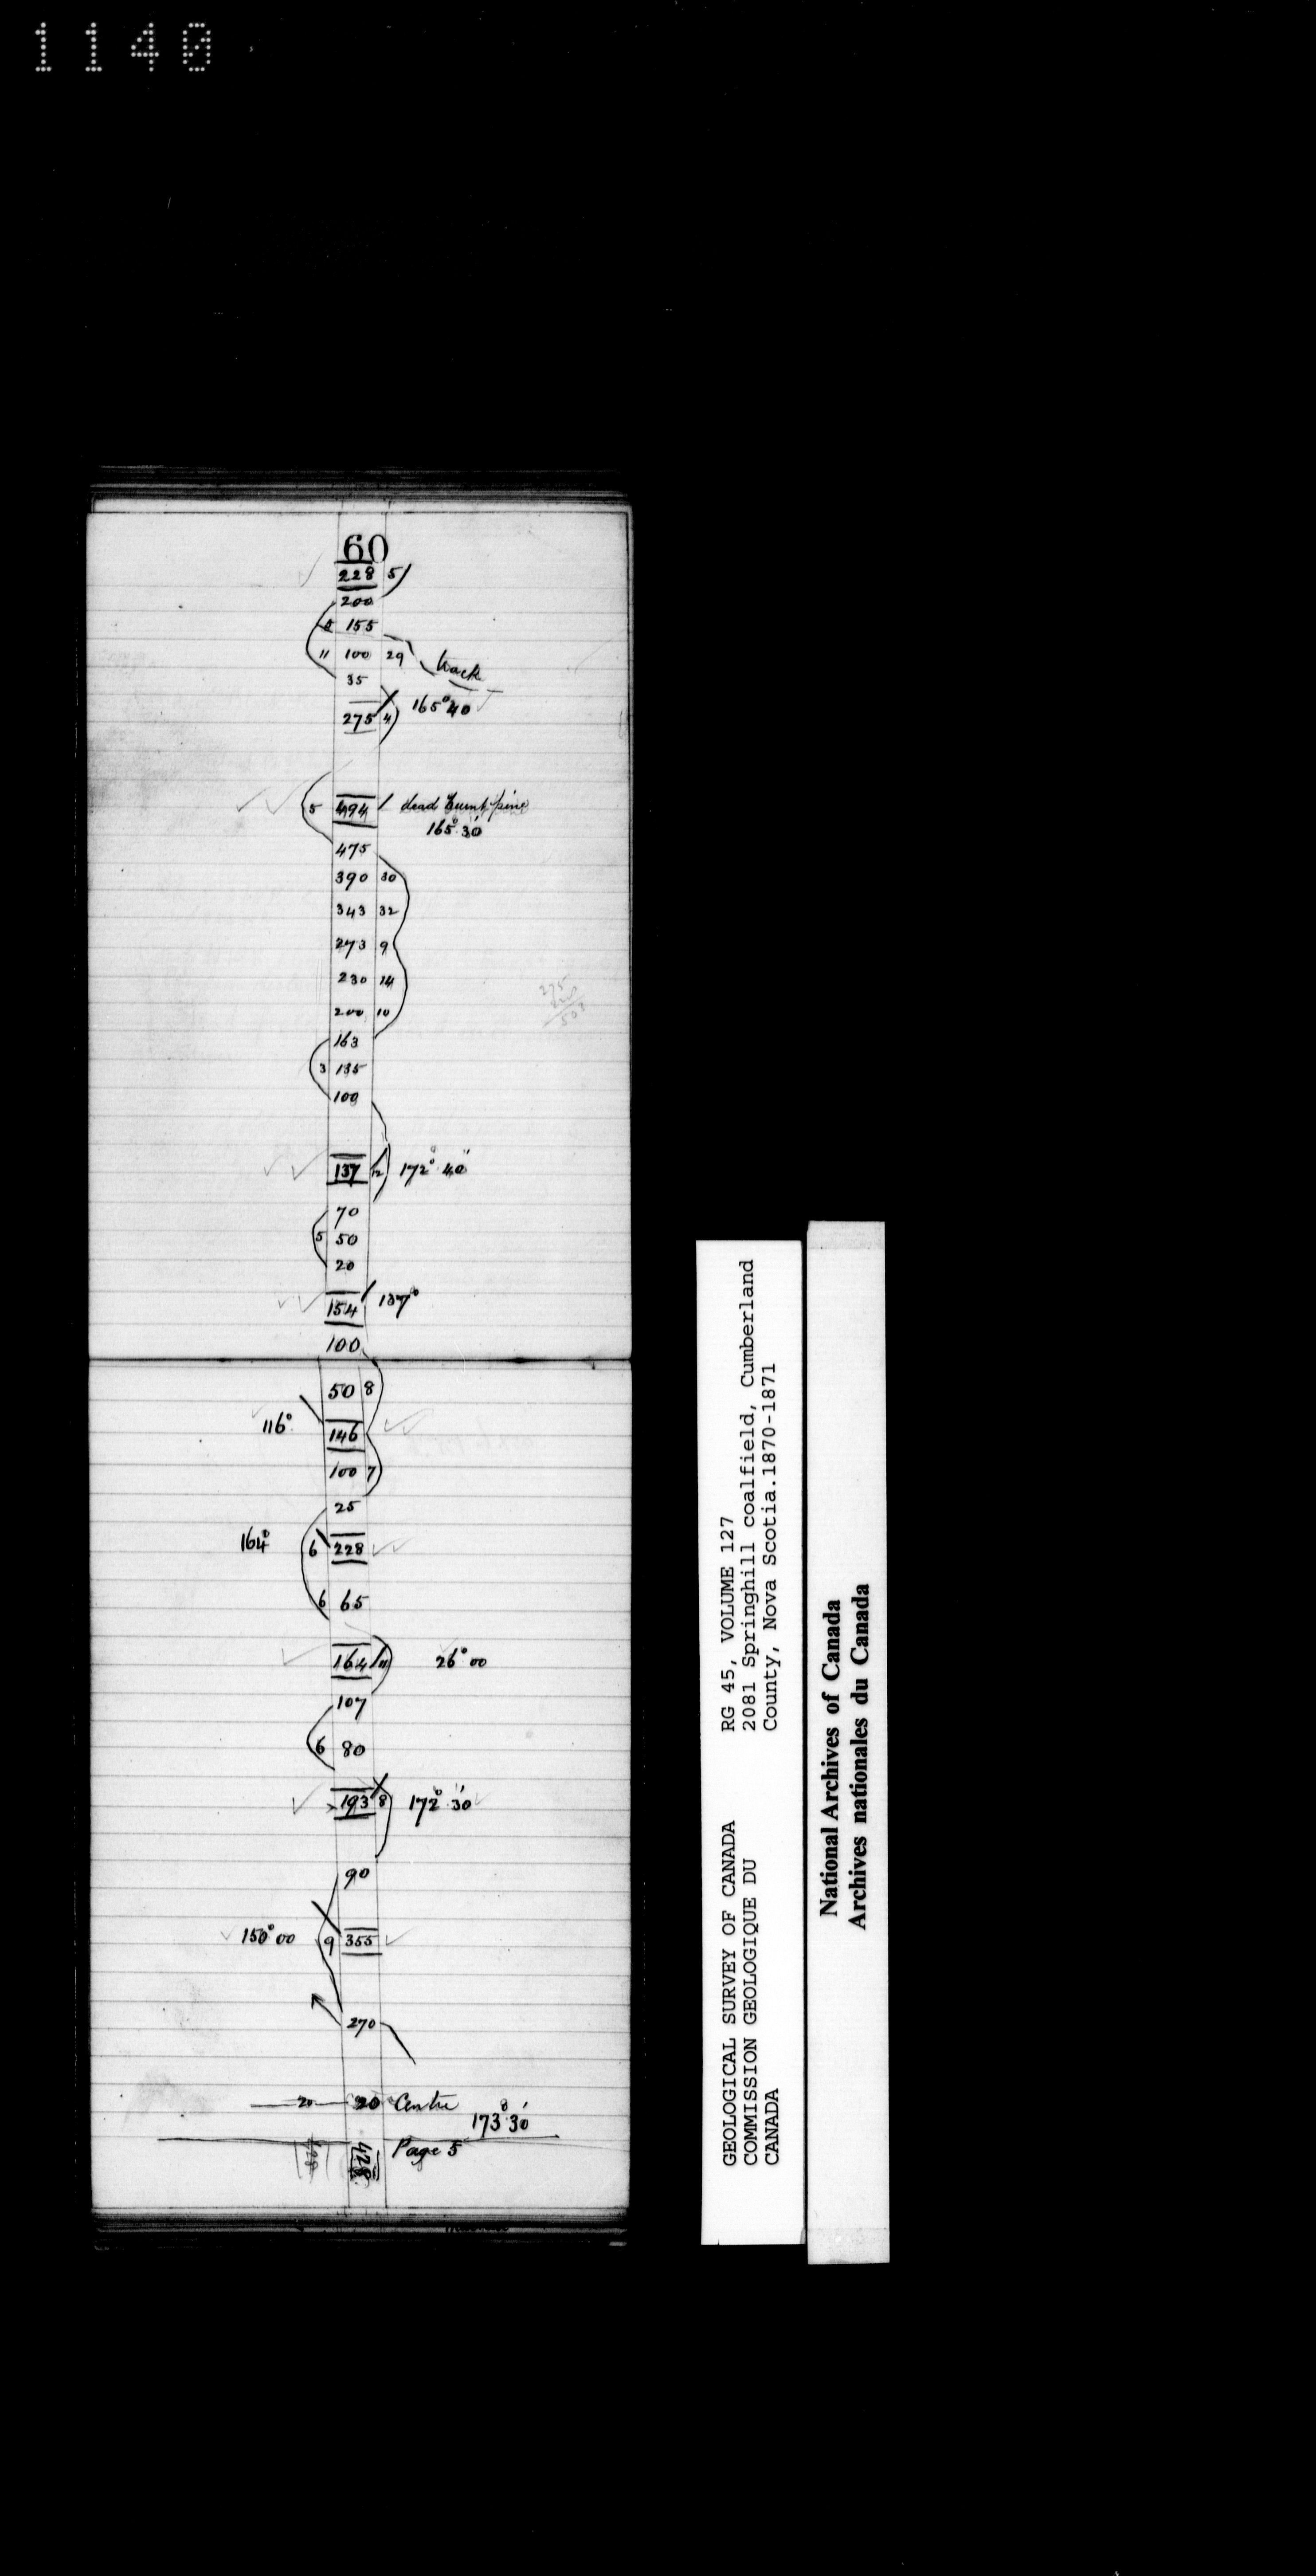 1140
60
228 5
200
8 155
11 100 29 track
35
165° 40
275 4
5 494 dead burnt pine
165° 30'
475
390 30
343 32
273 9
230 14
200 10
163
3 135
100
137 12 172° 40'
70
5 50
20
154 137°
100
275
228
503
50 8
116° 146
100 7
25
164° 6 228
6 65
164 11 26° 00
107
6 80
193 8 172° 30'
90
150° 00 9 355
270
20 20 Centre
173° 30'
428 Page 5
GEOLOGICAL SURVEY OF CANADA RG 45, VOLUME 127
COMMISSION GEOLOGIQUE DU 2081 Springhill coalfield, Cumberland
CANADA County, Nova Scotia.1870-1871
National Archives of Canada
Archives nationales du Canada